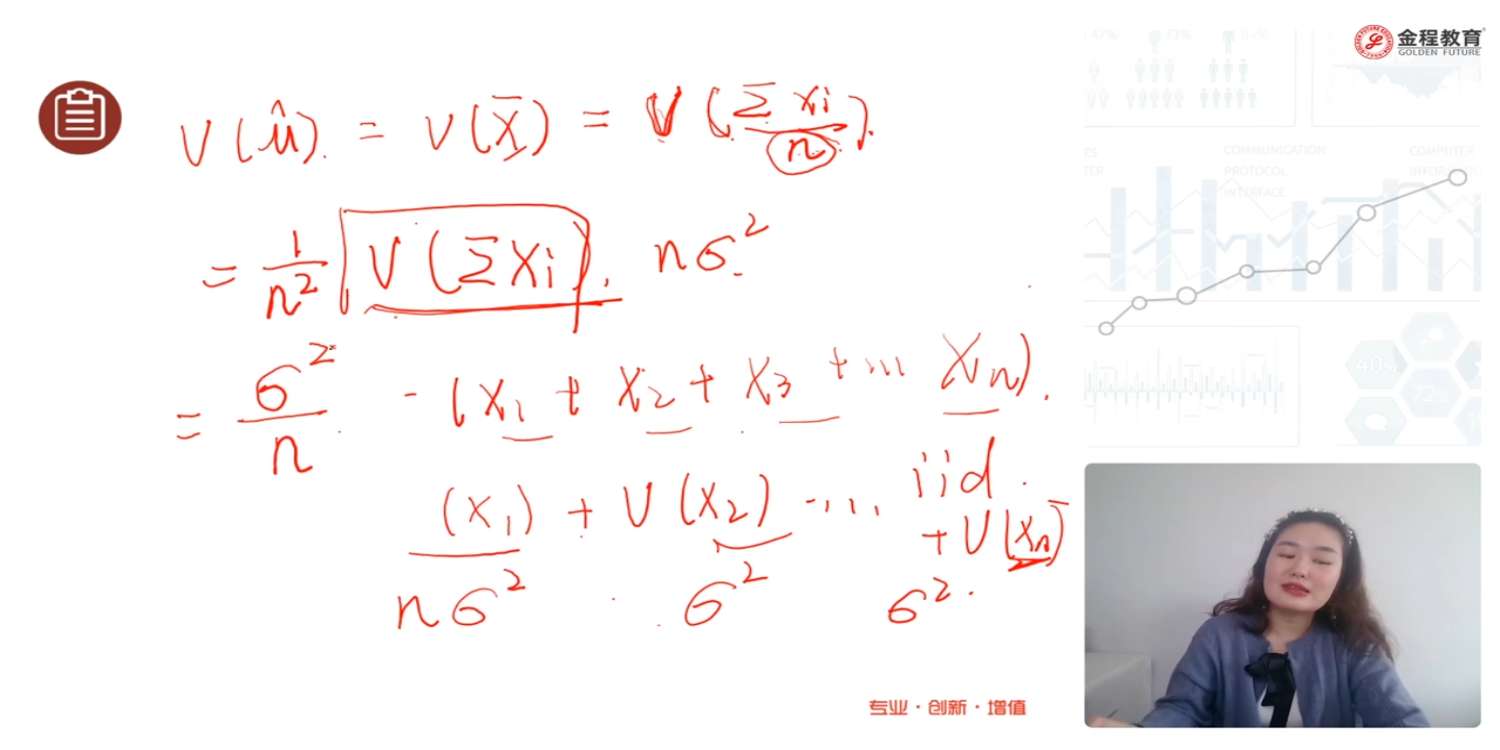 金程教育
GOLDEN FUTURE
V(μ̂) = V(X̄) = V(Σxi/n).
= 1/n² V(Σxi). nσ²
= σ²/n (x₁ + x₂ + x₃ + ... xn).
iid.
(x₁) + V(x₂) ....
+ V(xn)
nσ² σ² σ².
COMMUNICATION
PROTOCOL
INTERFACE
COMPUTER
40%
72%
专业·创新·增值